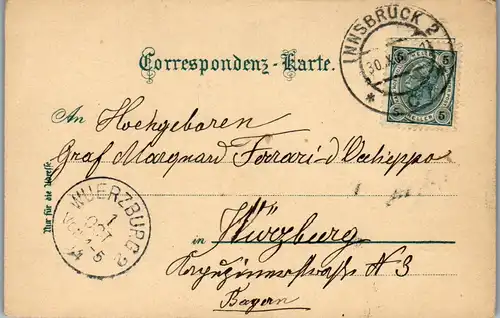 INNSBRUCK 2
30.
5 5
HELLER
Correspondenz-Karte.
An Hochgeboren
Graf Marquard Ferrari-d'Occhieppo
Nur für die Adresse.
WUERZBURG 2
1
OCT
in Würzburg
Kapuzinerstraße N 3
Bayern